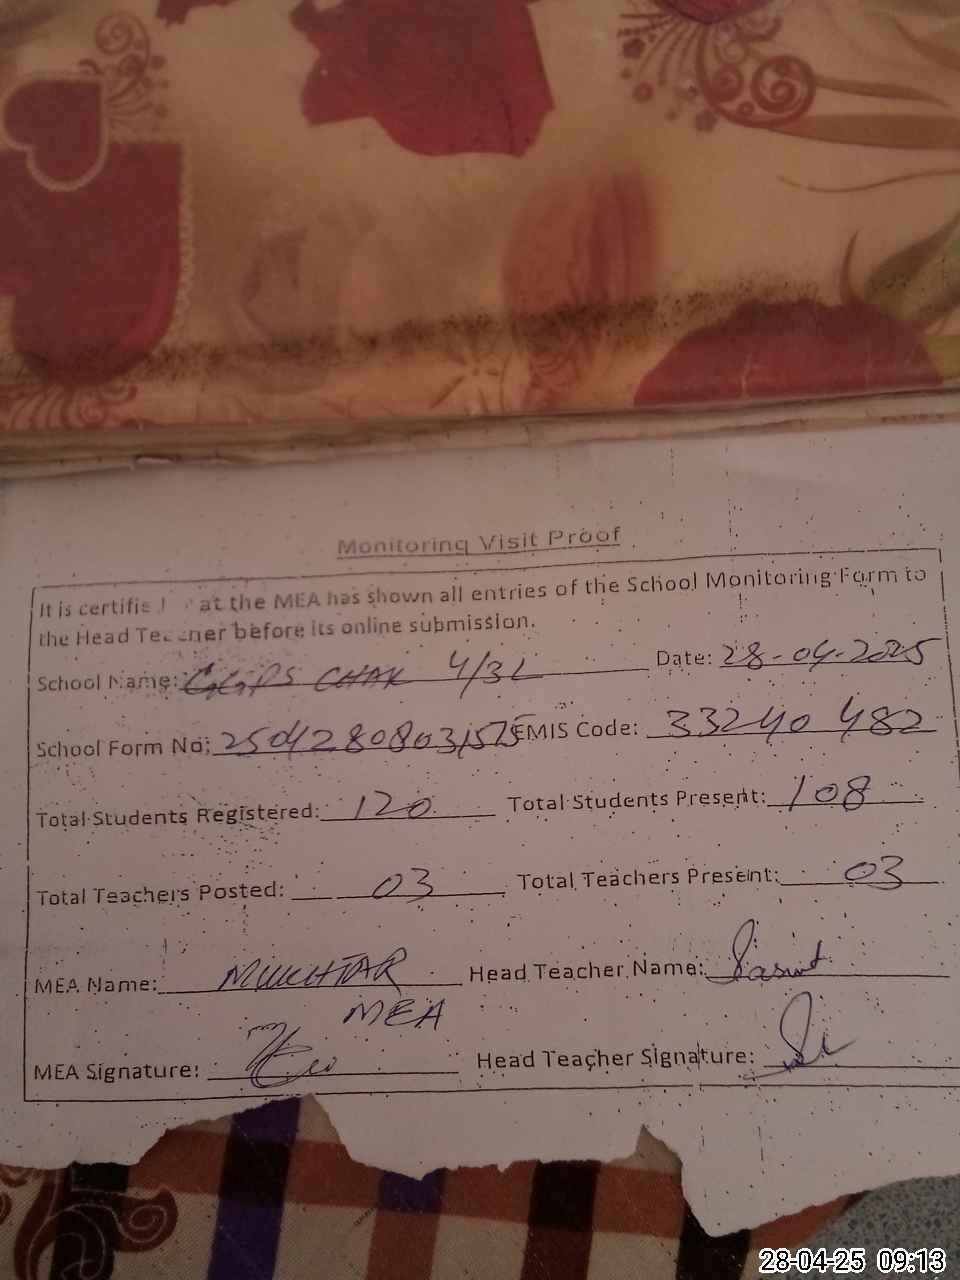 Monitoring Visit Proof
It is certifie at the MEA has shown all entries of the School Monitoring Form to
the Head Teacher before its online submission.
School Name: GGPS CHAK 4/3L Date: 28-04-2025
School Form No: EMIS Code: 33240482
Total Students Registered: 120 Total Students Present: 108
Total Teachers Posted: 03 Total Teachers Present: 03
MEA Name: MUKHTAR Head Teacher Name:
MEA
MEA Signature: Head Teacher Signature:
28-04-25 09:13